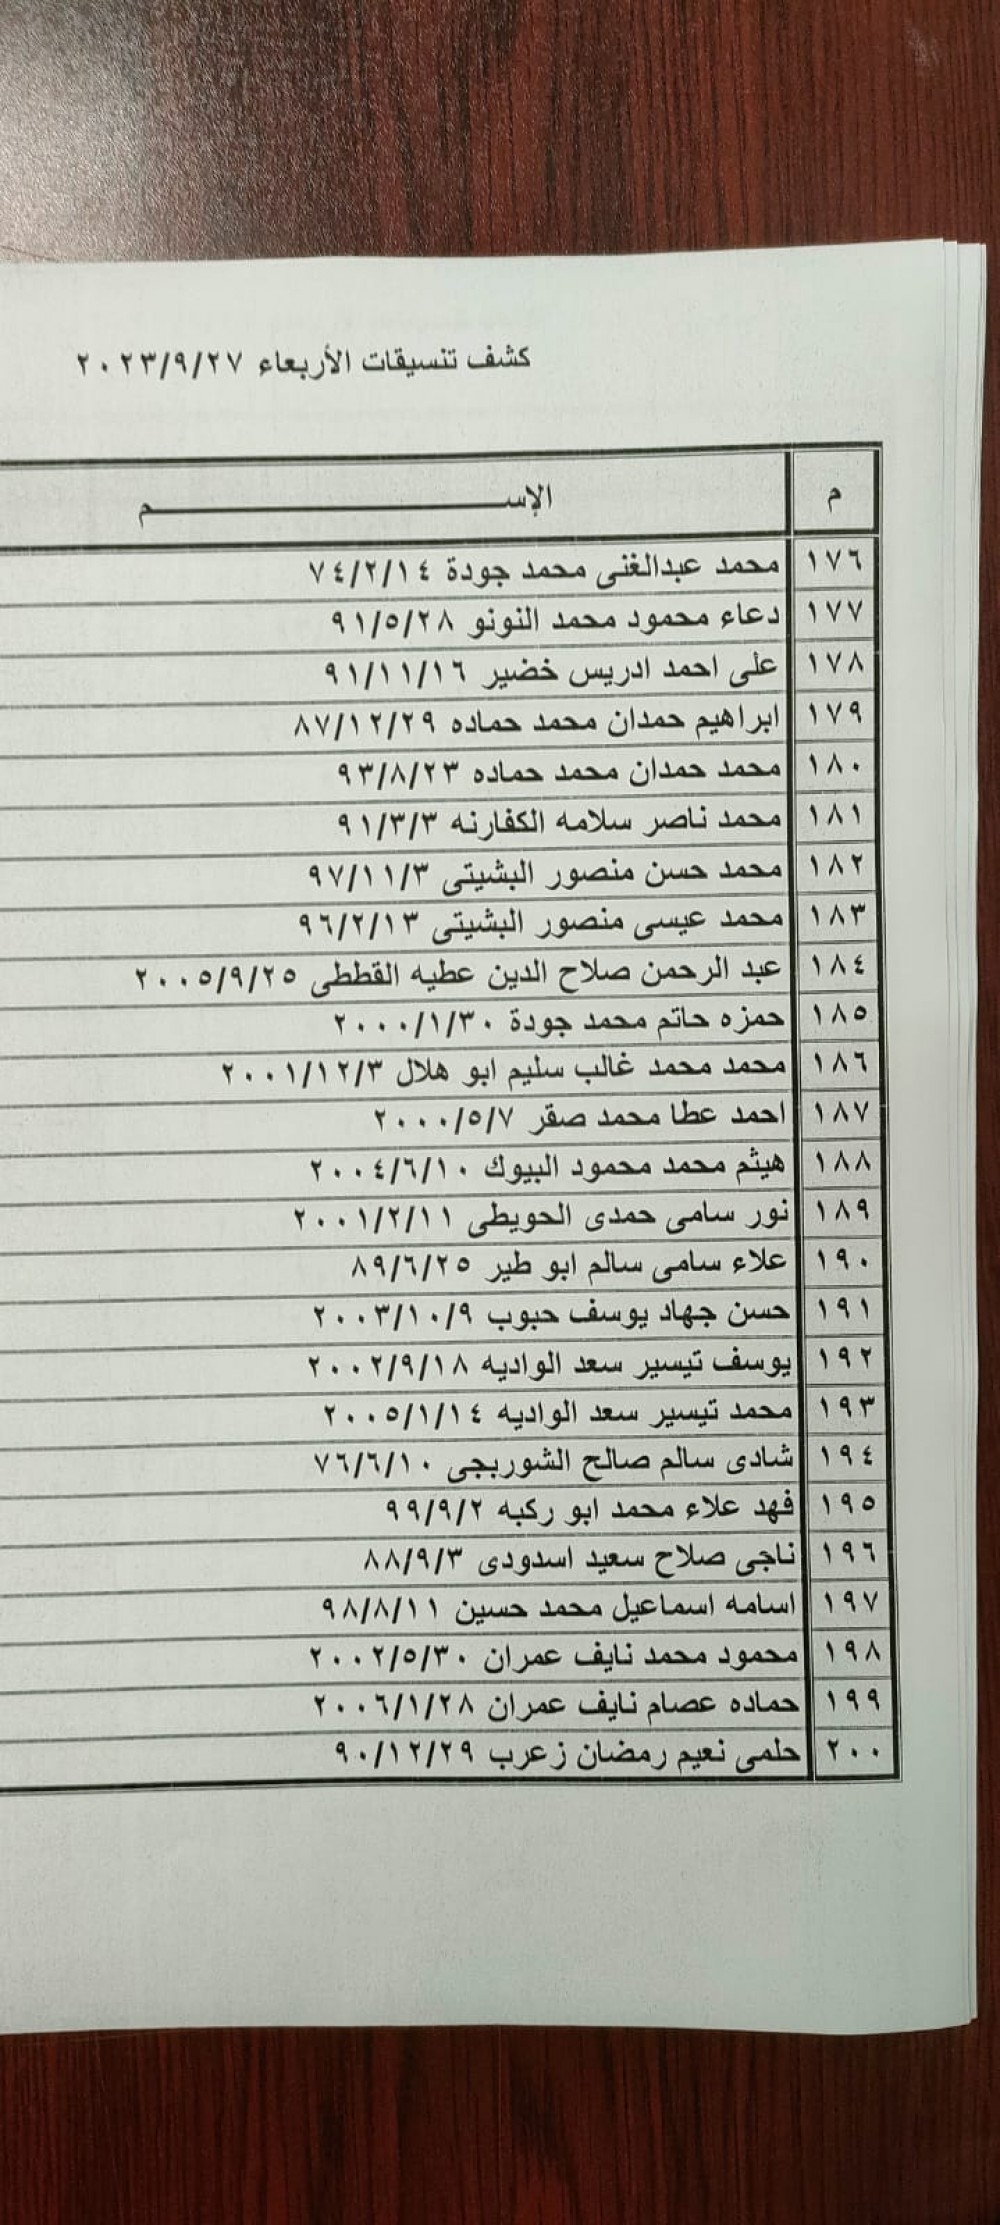 كشف تنسيقات الأربعاء ٢٠٢٣/٩/٢٧
م الإســـــــــم
١٧٦ محمد عبدالغنى محمد جودة ٧٤/٢/١٤
١٧٧ دعاء محمود محمد النونو ٩١/٥/٢٨
١٧٨ على احمد ادريس خضير ٩١/١١/١٦
١٧٩ ابراهيم حمدان محمد حماده ٨٧/١٢/٢٩
١٨٠ محمد حمدان محمد حماده ٩٣/٨/٢٣
١٨١ محمد ناصر سلامه الكفارنه ٩١/٣/٣
١٨٢ محمد حسن منصور البشيتى ٩٧/١١/٣
١٨٣ محمد عيسى منصور البشيتى ٩٦/٢/١٣
١٨٤ عبد الرحمن صلاح الدين عطيه القططى ٢٠٠٥/٩/٢٥
١٨٥ حمزه حاتم محمد جودة ٢٠٠٠/١/٣٠
١٨٦ محمد محمد غالب سليم ابو هلال ٢٠٠١/١٢/٣
١٨٧ احمد عطا محمد صقر ٢٠٠٠/٥/٧
١٨٨ هيثم محمد محمود البيوك ٢٠٠٤/٦/١٠
١٨٩ نور سامى حمدى الحويطى ٢٠٠١/٢/١١
١٩٠ علاء سامى سالم ابو طير ٨٩/٦/٢٥
١٩١ حسن جهاد يوسف حبوب ٢٠٠٣/١٠/٩
١٩٢ يوسف تيسير سعد الواديه ٢٠٠٢/٩/١٨
١٩٣ محمد تيسير سعد الواديه ٢٠٠٥/١/١٤
١٩٤ شادى سالم صالح الشوربجى ٧٦/٦/١٠
١٩٥ فهد علاء محمد ابو ركبه ٩٩/٩/٢
١٩٦ ناجى صلاح سعيد اسدودى ٨٨/٩/٣
١٩٧ اسامه اسماعيل محمد حسين ٩٨/٨/١١
١٩٨ محمود محمد نايف عمران ٢٠٠٢/٥/٣٠
١٩٩ حماده عصام نايف عمران ٢٠٠٦/١/٢٨
٢٠٠ حلمى نعيم رمضان زعرب ٩٠/١٢/٢٩